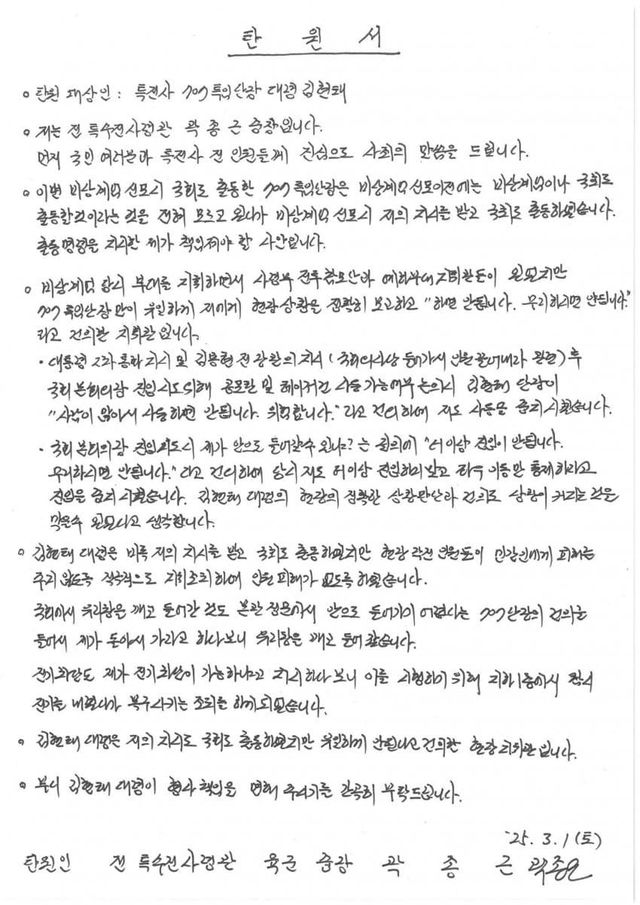 탄 원 서
○ 탄원 대상인 : 특전사 707특임단장 대령 김현태
○ 저는 전 특수전사령관 곽종근 중장입니다.
먼저 국민 여러분과 특전사 전 인원들께 진심으로 사죄의 말씀을 드립니다.
○ 이번 비상계엄 선포시 국회로 출동한 707특임단장은 비상계엄 선포이전에는 비상계엄이나 국회로
출동할것이라는 것을 전혀 모르고 있다가 비상계엄 선포시 저의 지시를 받고 국회로 출동하였습니다.
출동명령을 지시한 제가 책임져야 할 사안입니다.
○ 비상계엄 당시 부대를 지휘하면서 사령부 전투참모단과 예하부대 지휘관들이 있었지만
707특임단장만이 유일하게 저에게 현장상황을 정확히 보고하고 "하면 안됩니다. 무리하시면 안됩니다."
라고 건의한 지휘관입니다.
· 대통령 2차 통화 지시 및 김용현 전 장관의 지시 (국회의사당 들어가서 인원 끌어내라 관련) 후
국회 본회의장 진입시도 위해 공포탄 및 테이저건 사용가능여부 논의시 김현태 단장이
"사람이 많아서 사용하면 안됩니다. 위험합니다." 라고 건의하여 저도 사용을 중지시켰습니다.
· 국회 본회의장 진입시도시 제가 안으로 들어갈수 있냐? 는 질의에 "더이상 진입이 안됩니다.
무리하시면 안됩니다." 라고 건의하여 당시 저도 더이상 진입하지말고 하며 이동만 통제하라고
진입을 중지시켰습니다. 김현태 대령의 현장의 정확한 상황판단과 건의로 상황이 커지는것을
막을수 있었다고 생각합니다.
○ 김현태 대령은 비록 저의 지시를 받고 국회로 출동하였지만 현장 작전인원들이 민간인에게 피해를
주지 않도록 적극적으로 지휘조치하여 인원 피해가 없도록 하였습니다.
국회에서 유리창을 깨고 들어간 것도 본관 정문에서 안으로 들어가기 어렵다는 707단장의 건의를
들어서 제가 돌아서 가라고 하다보니 유리창을 깨고 들어갔습니다.
전기차단도 제가 전기차단이 가능하냐고 지시하다 보니 이를 시행하기 위해 지하1층에서 잠시
전기를 내렸다가 복구시키는 조치를 하게 되었습니다.
○ 김현태 대령은 저의 지시로 국회로 출동하였지만 유일하게 안된다고 건의한 현장지휘관입니다.
○ 부디 김현태 대령이 형사 책임을 면해 주시기를 간곡히 부탁드립니다.
'25. 3. 1 (토)
탄원인 전 특수전사령관 육군 중장 곽 종 근 곽종근